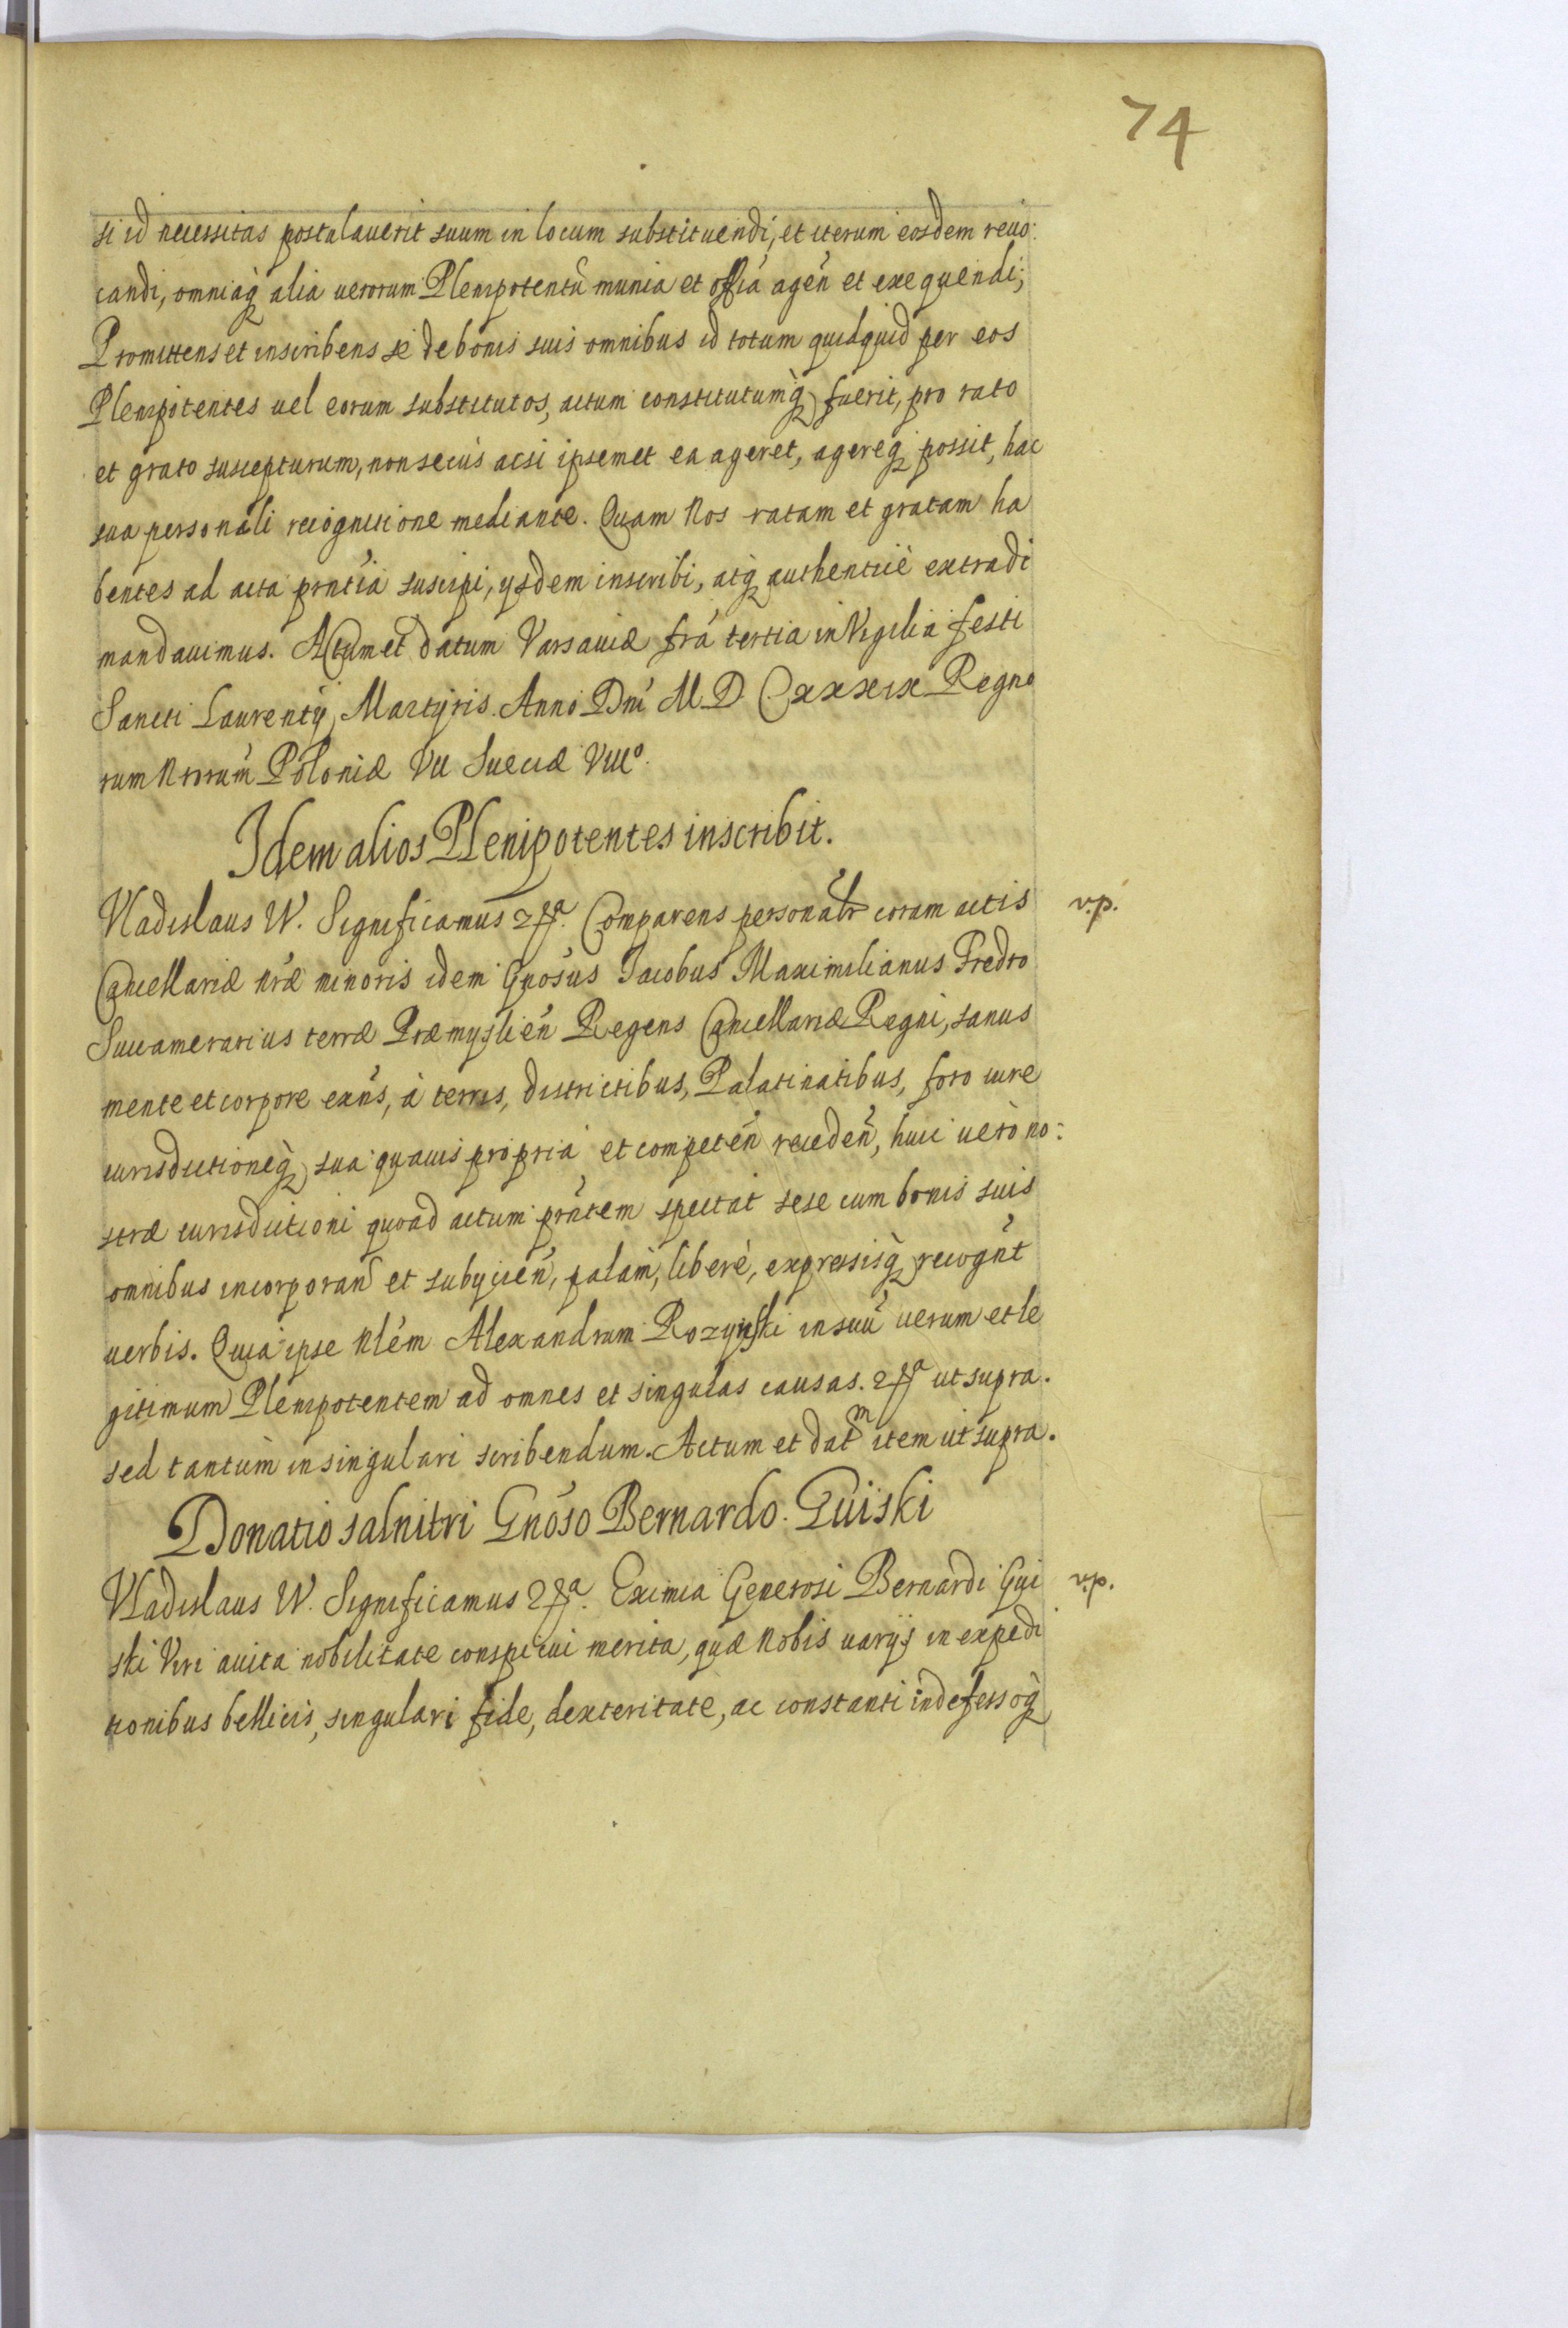 74
si id necessitas postulauerit suum in locum substituendi, et iterum eosdem reuo:
candi, omniaq̀ alia uerorum Plenipotentũ munia et offia agen̄ et exequendi;
Promittens et inscribens se de bonis suis omnibus id totum quidquid per eos
Plenipotentes uel eorum substitutos, actum constitutumq̀ fuerit, pro rato
et grato suscepturum, non secus acsi ipsemet ea ageret, agereq̀ possit, hac
sua personali recognitione mediante. Quam Nos ratam et gratam ha
bentes ad acta pñtia suscipi, ysdem inscribi, atq̀ authenticè extradi
mandauimus. Actum et datum Varsauiæ fra tertia in Vigilia festi
Sancti Laurentÿ Martyris. Anno Dni M D CXXXIX Regno
rum Nrorum Poloniæ VII Sueciæ VIIIº.
Idem alios Plenipotentes inscribit.
Vladislaus IV. Significamus 2ffª. Comparens personalr coram actis
v.p.
Cancellariæ nræ minoris idem Gnosus Jacobus Maximilianus Fredro
Succamerarius terræ Præmyslien̄ Regens Cancellariæ Regni, sanus
mente et corpore exn̄s, à terris, districtibus, Palatinatibus, foro iure
iurisdictioneq̀ sua quauis propria et competen̄ receden̄, huic uerò no:
stræ iurisdictioni quoad actum pn̄tem spectat sese cum bonis suis
omnibus incorporan̄ et subycien̄, palàm, liberè, expressisq̀ recogn̄t
uerbis. Quia ipse Nlem Alexandrum Rozynski in suũ uerum et le
gitimum Plenipotentem ad omnes et singulas causas. 2ffª ut supra.
sed tantùm in singulari scribendum. Actum et datm item ut supra.
Donatio salnitri Gnoso Bernardo Guiski
Vladislaus IV. Significamus 2ffª. Eximia Generosi Bernardi Gui
v.p.
ski Viri auita nobilitate conspicui merita, quæ Nobis uarijs in expedi
tionibus bellicis, singulari fide, dexteritate, ac constanti indefessoq̀